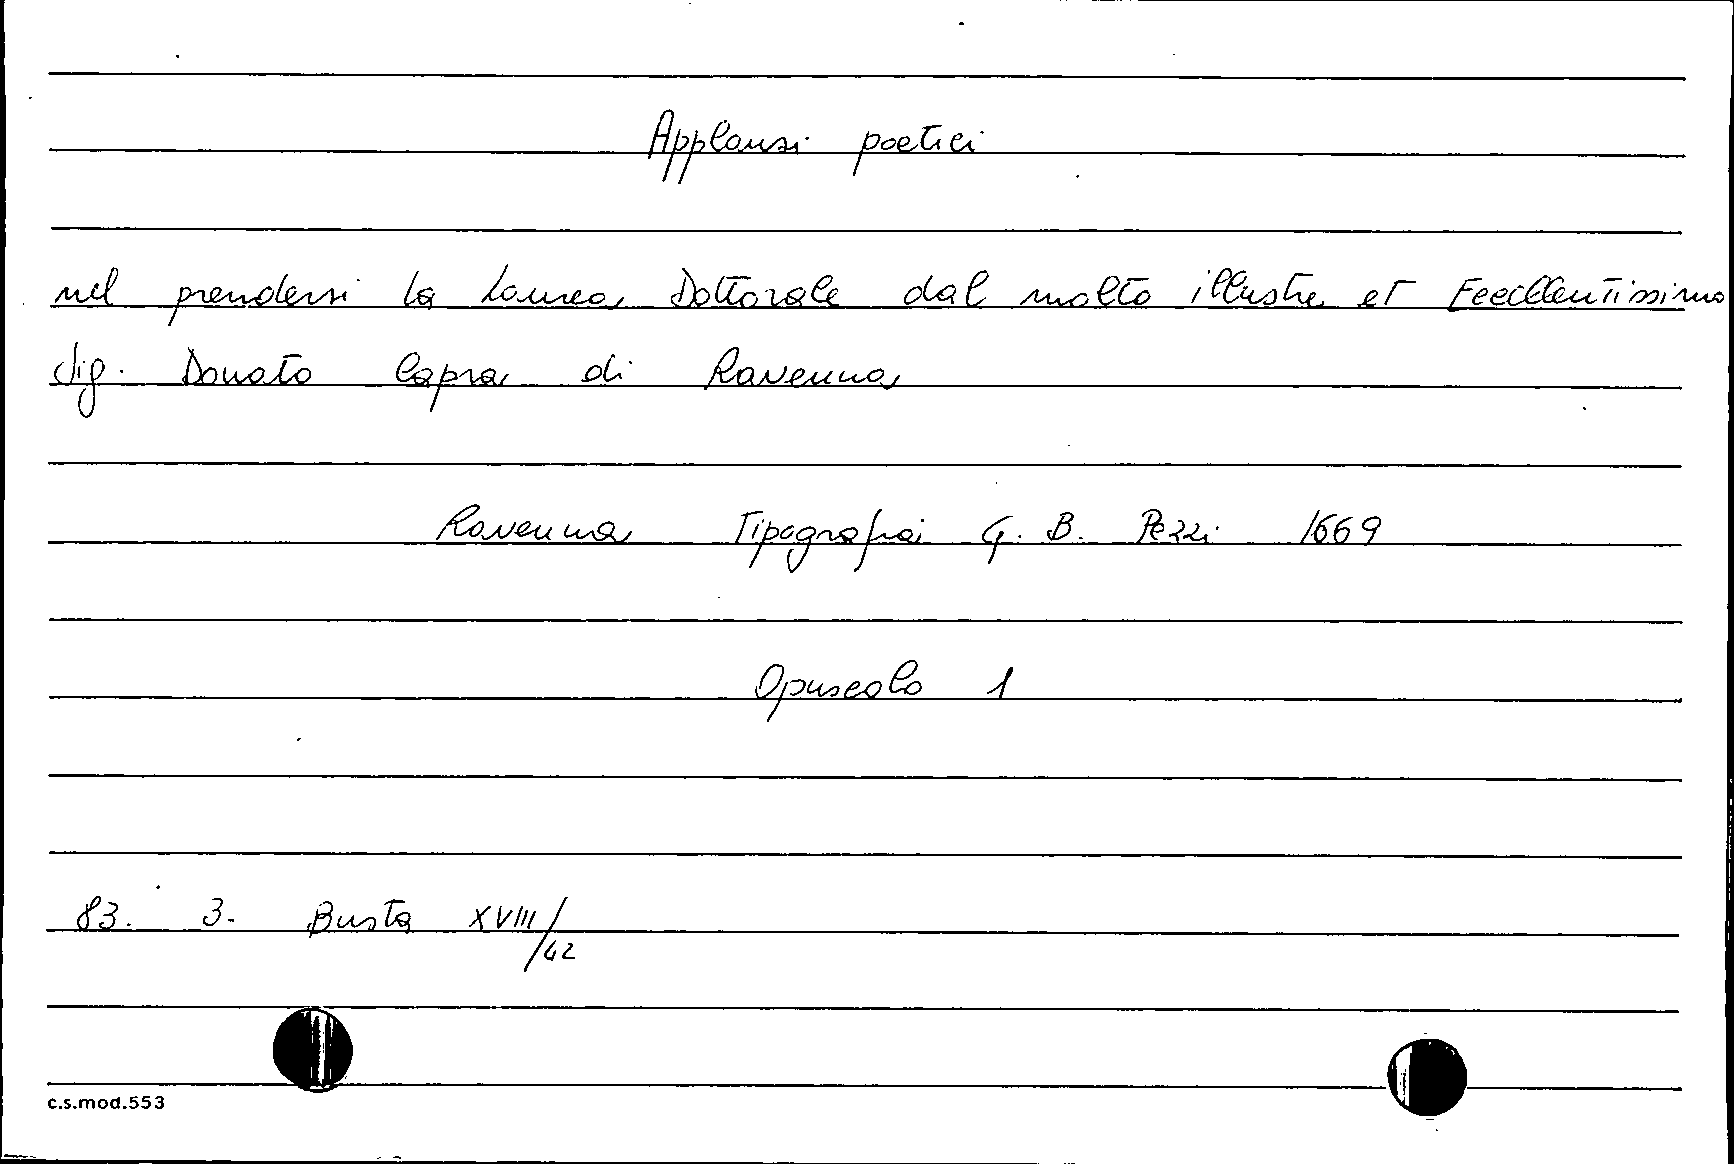 Applausi poetici
nel prendersi la Laurea Dottorale dal molto illustre et Eccellentissimo
Sig. Donato Capra di Ravenna
Ravenna Tipografia G. B. Pezzi 1669
Opuscolo 1
83. 3. Busta XVIII/42
c.s.mod.553